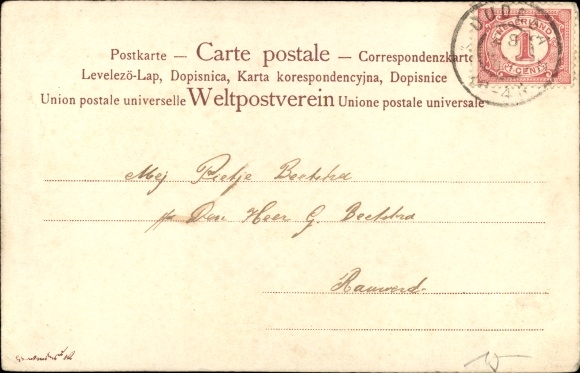 Postkarte — Carte postale — Correspondenzkarte
Levelezö-Lap, Dopisnica, Karta korespondencyjna, Dopisnice
Union postale universelle Weltpostverein Unione postale universale
NEDERLAND
1
CENT
Mej Pietje Beetstra
p/a Den Heer G. Beetstra
Rauwerd